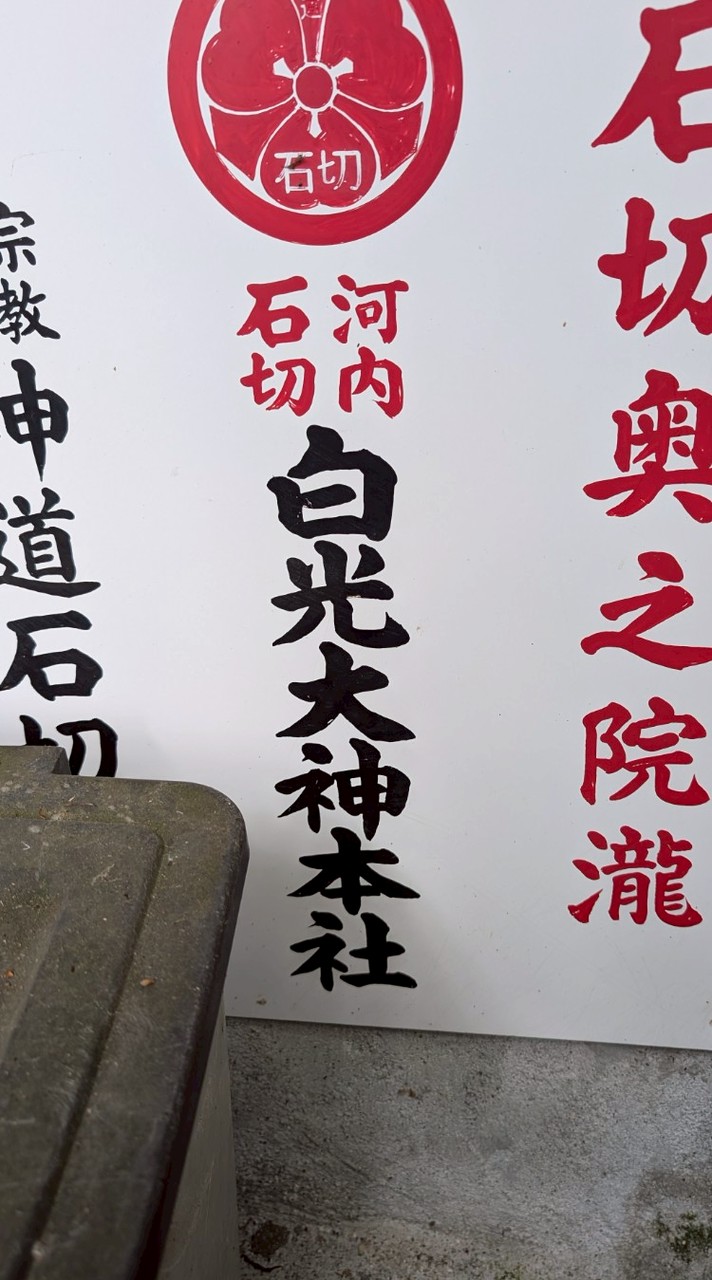 石切奥之院瀧
辺
石切
河内
石切
白光大神本社
宗教
神道石切